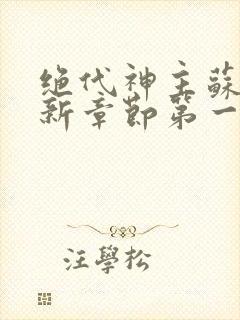 绝代神主蘇
新章節第一
汪學松